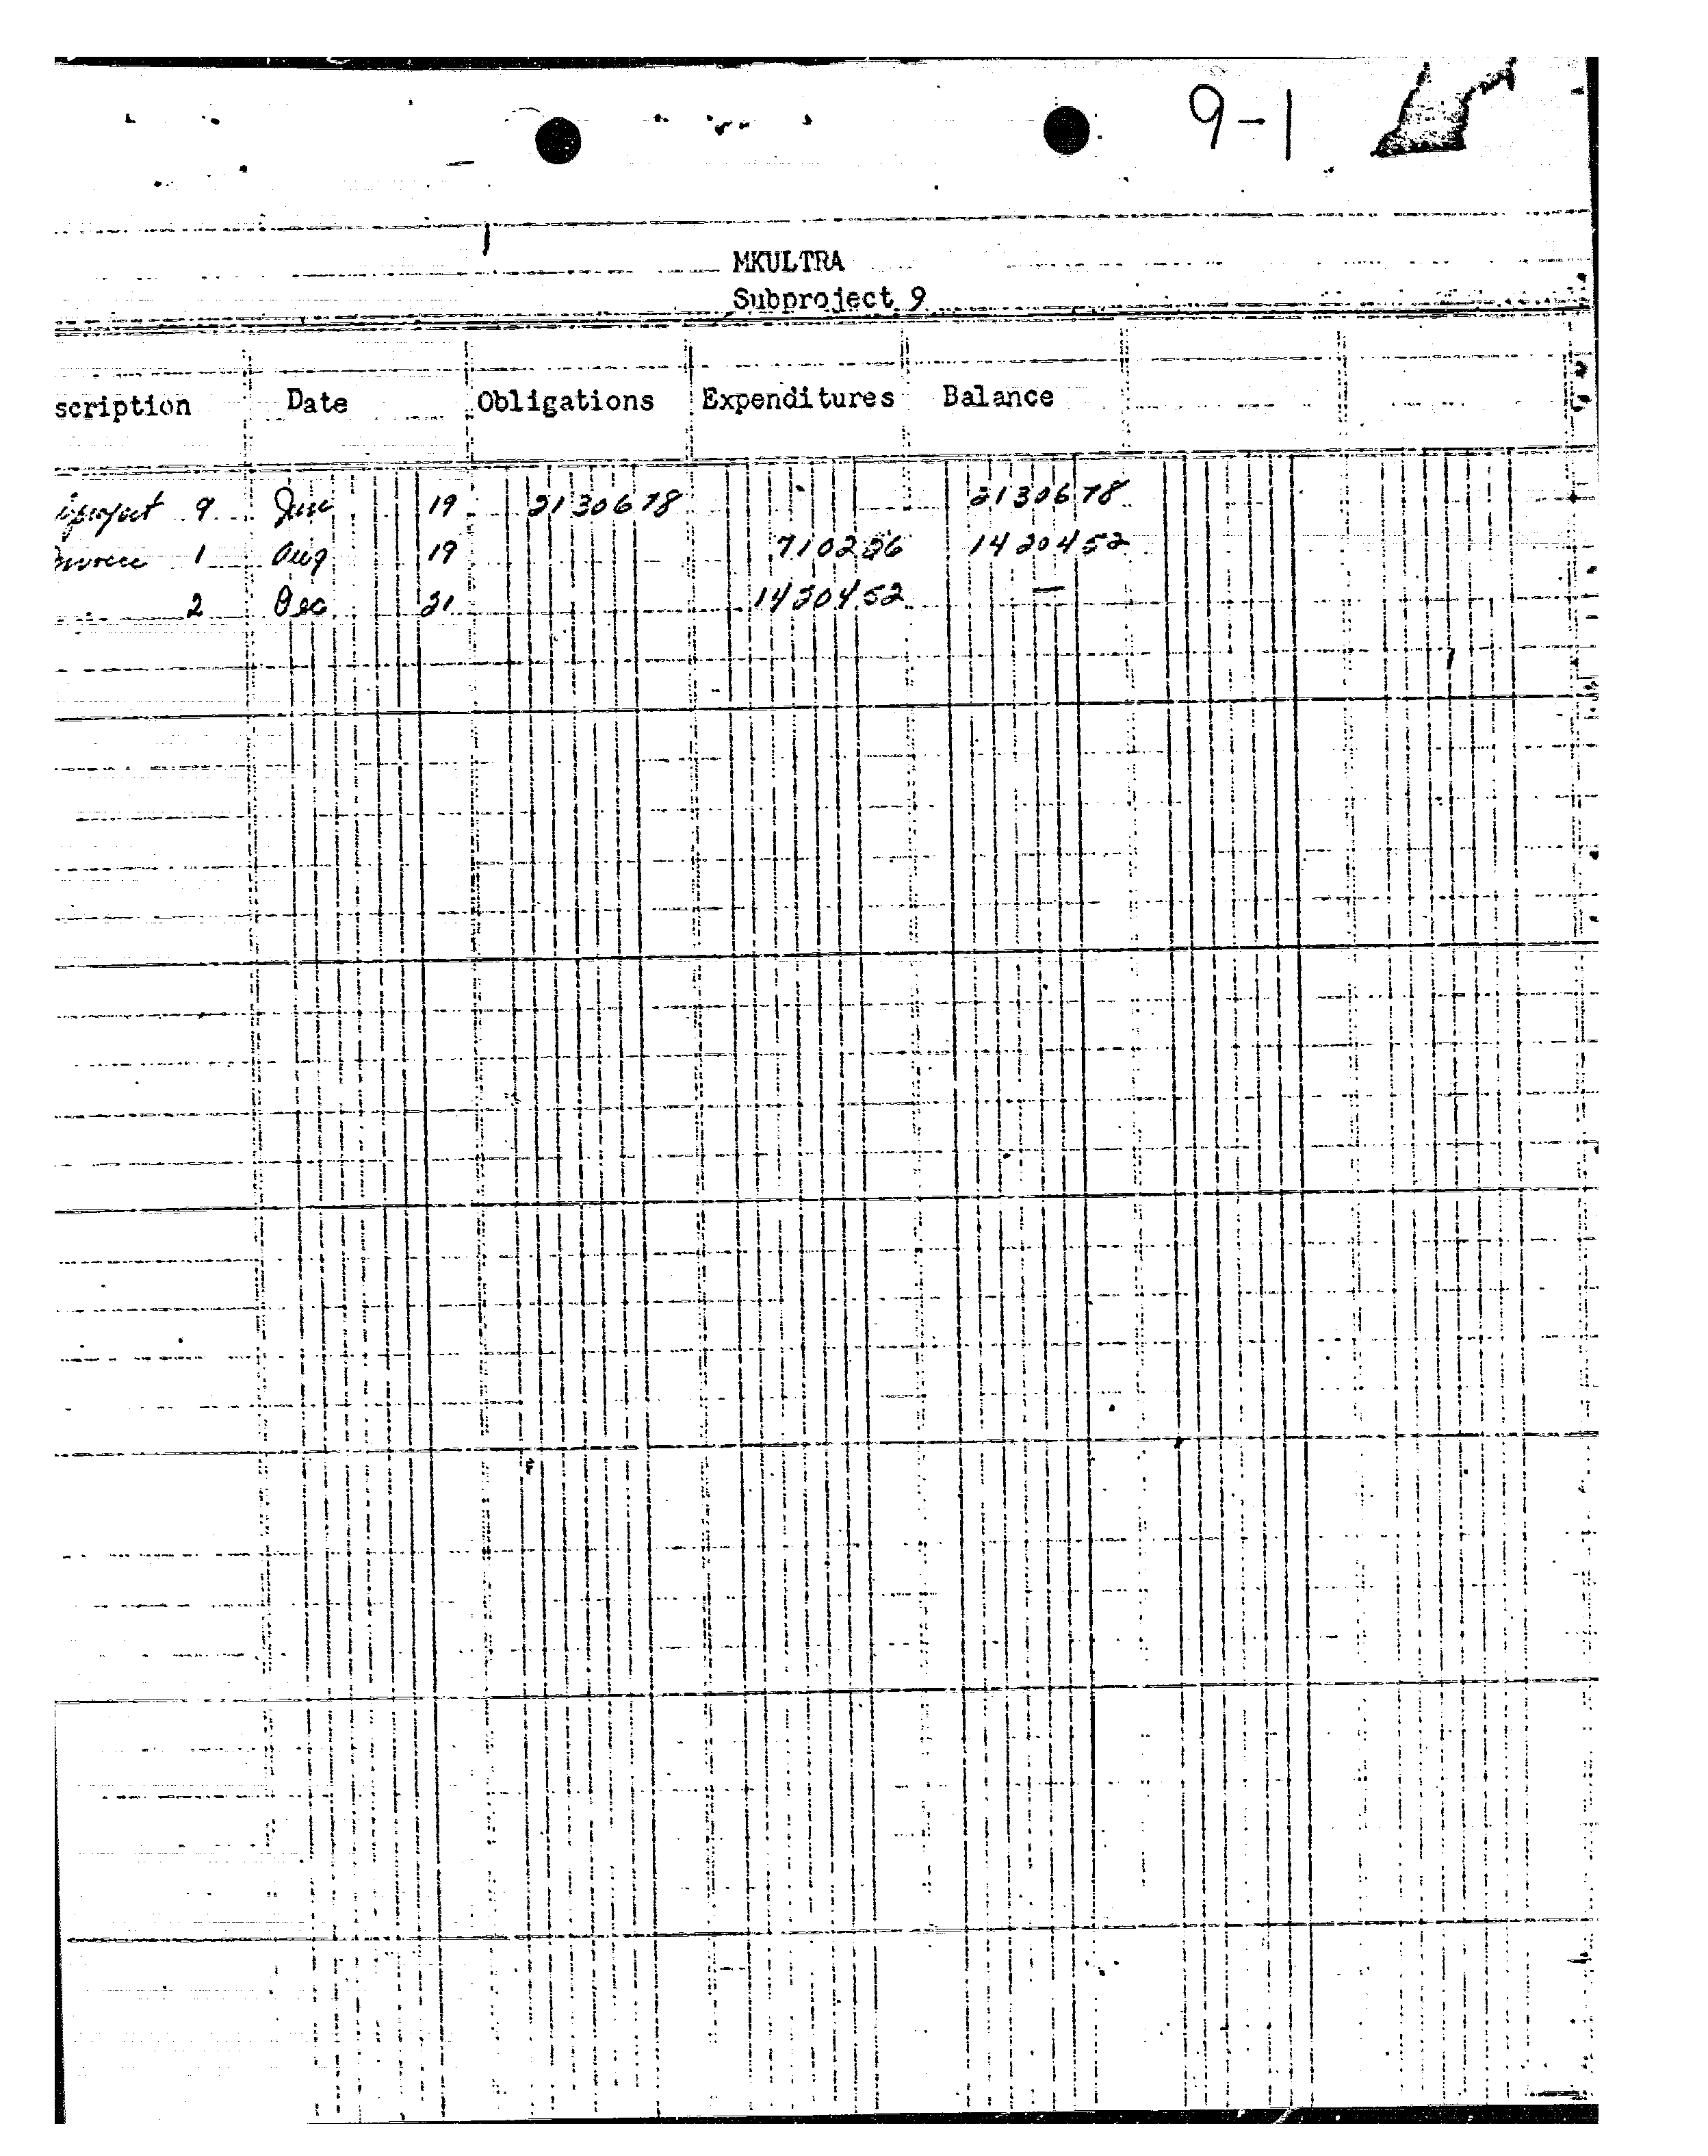 9-1
MKULTRA
Subproject 9
scription Date Obligations Expenditures Balance
9 June 19 2130678 2130678
1 Aug 19 710226 1420452
2 Dec 21 1420452 —